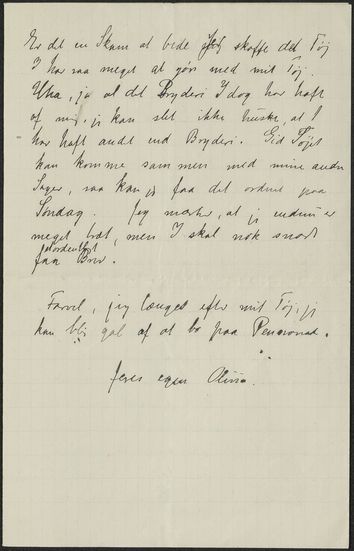 Er det en Skam at bede Jer skaffe det Tøj
I har saa meget at gøre med mit Tøj.
Uha, ja al det Bryderi I dog har haft
af mig, jeg kan slet ikke huske, at I
har haft andet end Bryderi. Gid Tøjet
kan komme sammen med mine andre
Sager, saa kan jeg faa det ordnet paa
Søndag. Jeg mærker, at jeg endnu er
meget træt, men I skal nok snart
faa ordentligt Brev.
Farvel, jeg længes efter mit Tøj, jeg
kan bli gal af at bo paa Pensionat.
Jeres egen